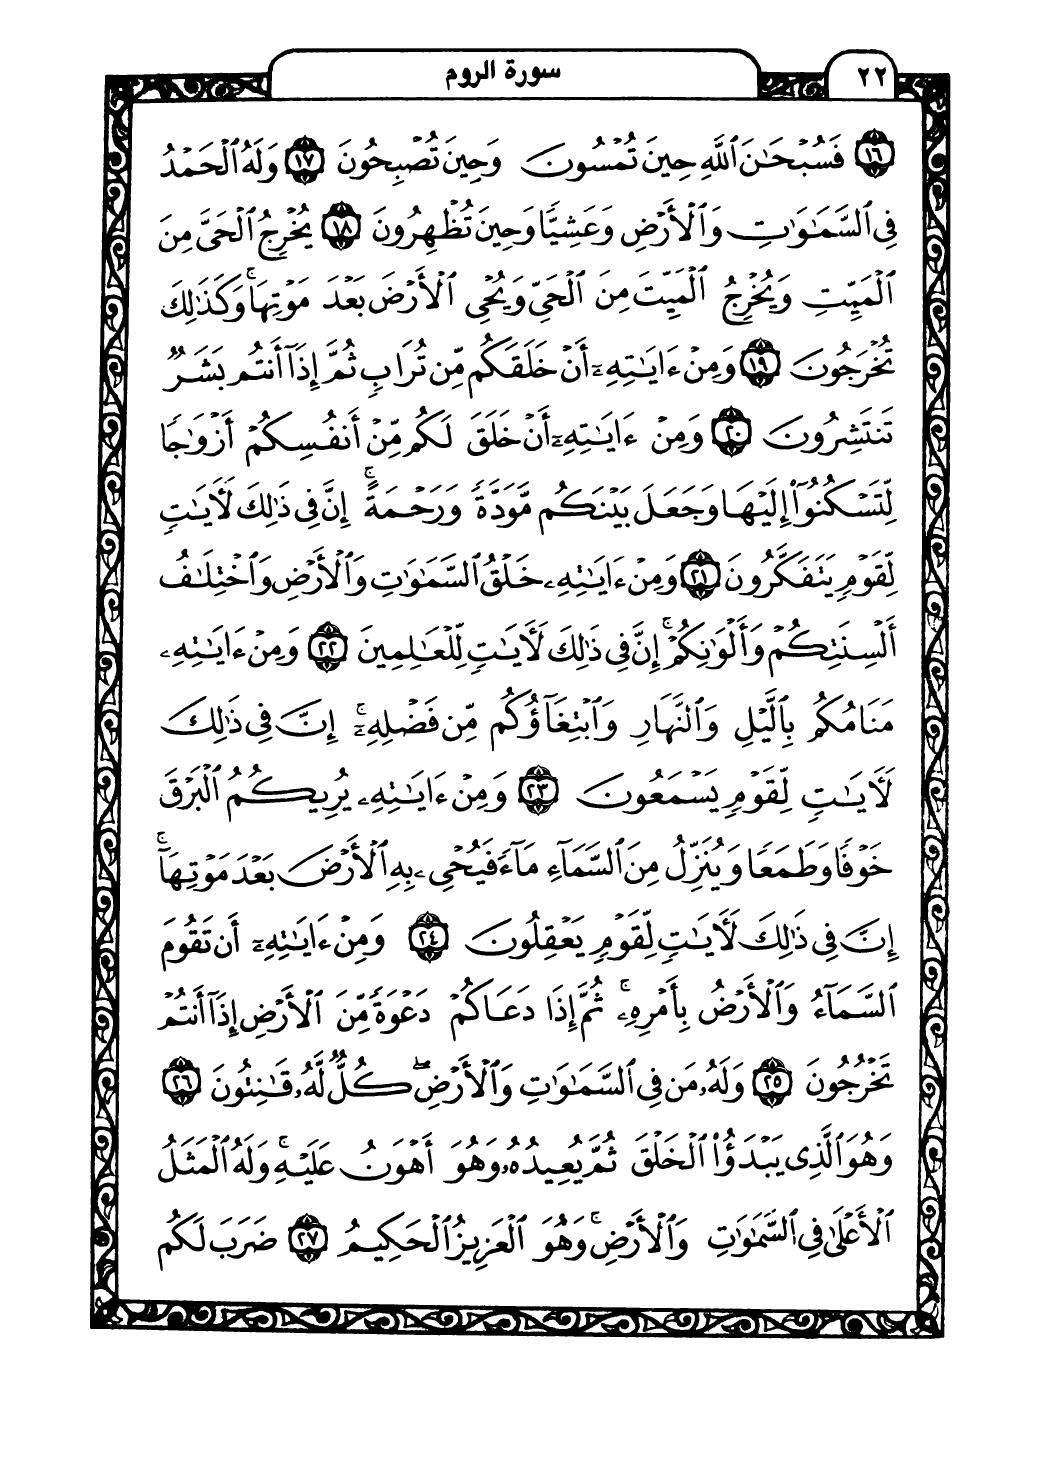 ٢٢ سورة الروم
١٦ فَسُبْحَٰنَ ٱللَّهِ حِينَ تُمْسُونَ وَحِينَ تُصْبِحُونَ ١٧ وَلَهُ ٱلْحَمْدُ
فِى ٱلسَّمَٰوَٰتِ وَٱلْأَرْضِ وَعَشِيًّا وَحِينَ تُظْهِرُونَ ١٨ يُخْرِجُ ٱلْحَىَّ مِنَ
ٱلْمَيِّتِ وَيُخْرِجُ ٱلْمَيِّتَ مِنَ ٱلْحَىِّ وَيُحْىِ ٱلْأَرْضَ بَعْدَ مَوْتِهَا ۚ وَكَذَٰلِكَ
تُخْرَجُونَ ١٩ وَمِنْ ءَايَٰتِهِۦٓ أَنْ خَلَقَكُم مِّن تُرَابٍ ثُمَّ إِذَآ أَنتُم بَشَرٌ
تَنتَشِرُونَ ٢٠ وَمِنْ ءَايَٰتِهِۦٓ أَنْ خَلَقَ لَكُم مِّنْ أَنفُسِكُمْ أَزْوَٰجًا
لِّتَسْكُنُوٓا۟ إِلَيْهَا وَجَعَلَ بَيْنَكُم مَّوَدَّةً وَرَحْمَةً ۚ إِنَّ فِى ذَٰلِكَ لَءَايَٰتٍ
لِّقَوْمٍ يَتَفَكَّرُونَ ٢١ وَمِنْ ءَايَٰتِهِۦ خَلْقُ ٱلسَّمَٰوَٰتِ وَٱلْأَرْضِ وَٱخْتِلَٰفُ
أَلْسِنَتِكُمْ وَأَلْوَٰنِكُمْ ۚ إِنَّ فِى ذَٰلِكَ لَءَايَٰتٍ لِّلْعَٰلِمِينَ ٢٢ وَمِنْ ءَايَٰتِهِۦ
مَنَامُكُم بِٱلَّيْلِ وَٱلنَّهَارِ وَٱبْتِغَآؤُكُم مِّن فَضْلِهِۦٓ ۚ إِنَّ فِى ذَٰلِكَ
لَءَايَٰتٍ لِّقَوْمٍ يَسْمَعُونَ ٢٣ وَمِنْ ءَايَٰتِهِۦ يُرِيكُمُ ٱلْبَرْقَ
خَوْفًا وَطَمَعًا وَيُنَزِّلُ مِنَ ٱلسَّمَآءِ مَآءً فَيُحْىِۦ بِهِ ٱلْأَرْضَ بَعْدَ مَوْتِهَآ ۚ
إِنَّ فِى ذَٰلِكَ لَءَايَٰتٍ لِّقَوْمٍ يَعْقِلُونَ ٢٤ وَمِنْ ءَايَٰتِهِۦٓ أَن تَقُومَ
ٱلسَّمَآءُ وَٱلْأَرْضُ بِأَمْرِهِۦ ۚ ثُمَّ إِذَا دَعَاكُمْ دَعْوَةً مِّنَ ٱلْأَرْضِ إِذَآ أَنتُمْ
تَخْرُجُونَ ٢٥ وَلَهُۥ مَن فِى ٱلسَّمَٰوَٰتِ وَٱلْأَرْضِ ۖ كُلٌّ لَّهُۥ قَٰنِتُونَ ٢٦
وَهُوَ ٱلَّذِى يَبْدَؤُا۟ ٱلْخَلْقَ ثُمَّ يُعِيدُهُۥ وَهُوَ أَهْوَنُ عَلَيْهِ ۚ وَلَهُ ٱلْمَثَلُ
ٱلْأَعْلَىٰ فِى ٱلسَّمَٰوَٰتِ وَٱلْأَرْضِ ۚ وَهُوَ ٱلْعَزِيزُ ٱلْحَكِيمُ ٢٧ ضَرَبَ لَكُم